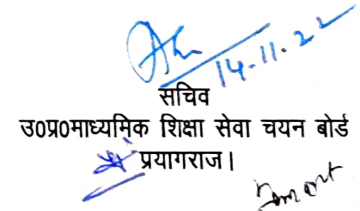 14-11-22
सचिव
उ०प्र०माध्यमिक शिक्षा सेवा चयन बोर्ड
प्रयागराज।